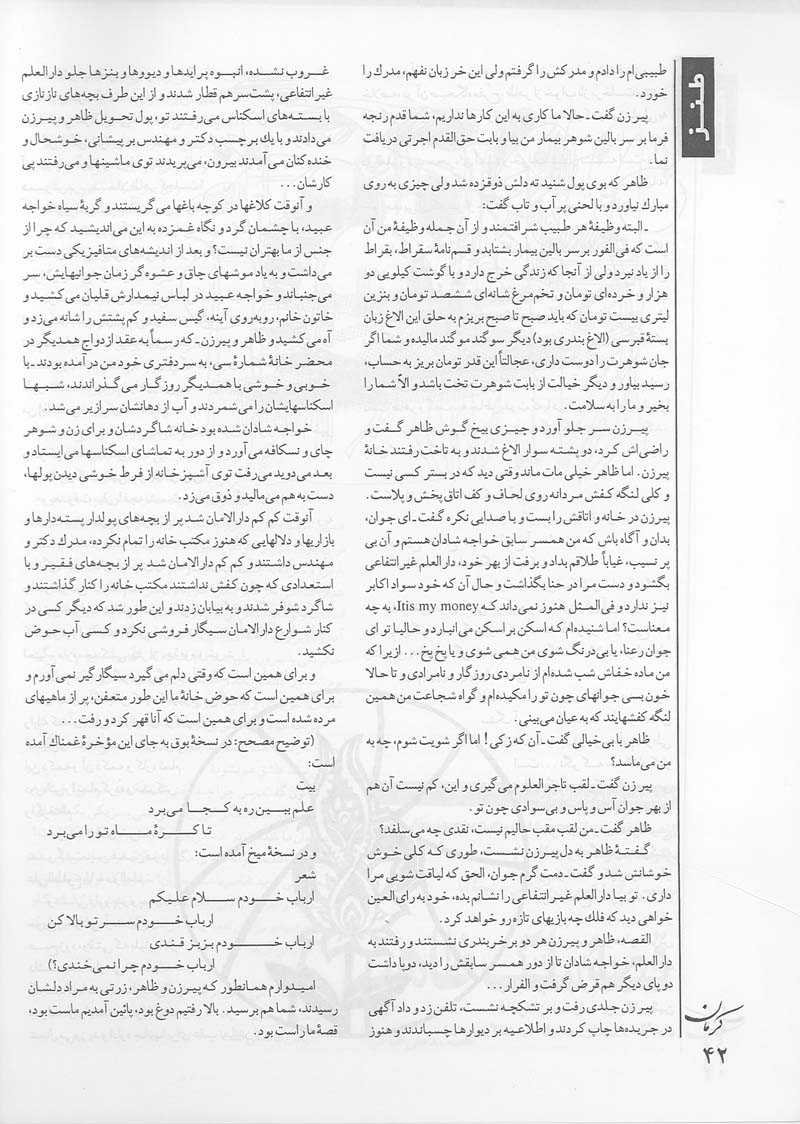 طنز
طبیبی‌ام را دادم و مدرکش را گرفتم ولی این خر زبان نفهم، مدرك را
خورد.
پیرزن گفت ـ حالا ما کاری به این کارها نداریم، شما قدم رنجه
فرما بر سر بالین شوهر بیمار من بیا و بابت حق‌القدم اجرتی دریافت
نما.
ظاهر که بوی پول شنید ته دلش ذوقزده شد ولی چیزی به روی
مبارك نیاورد و با لحنی پر آب و تاب گفت:
ـ البته وظیفهٔ هر طبیب شرافتمند و از آن جمله وظیفهٔ من آن
است که فی‌الفور بر سر بالین بیمار بشتابد و قسم‌نامهٔ سقراط، بقراط
را از یاد نبرد ولی از آنجا که زندگی خرج دارد و با گوشت کیلویی دو
هزار و خرده‌ای تومان و تخم‌مرغ شانه‌ای ششصد تومان و بنزین
لیتری بیست تومان که باید صبح تا صبح بریزم به حلق این الاغ زبان
بستهٔ قبرسی (الاغ بندری بود) دیگر سوگند موگند مالیده و شما اگر
جان شوهرت را دوست داری، عجالتاً این قدر تومان بریز به حساب،
رسید بیاور و دیگر خیالت از بابت شوهرت تخت باشد و الاّ شما را
بخیر و ما را به سلامت.
پیرزن سر جلو آورد و چیزی بیخ گوش ظاهر گفت و
راضی‌اش کرد، دو پشته سوار الاغ شدند و به تاخت رفتند خانهٔ
پیرزن. اما ظاهر خیلی مات ماند وقتی دید که در بستر کسی نیست
و کلی لنگه کفش مردانه روی لحاف و کف اتاق پخش و پلاست.
پیرزن در خانه و اتاقش را بست و با صدایی نکره گفت ـ ای جوان،
بدان و آگاه باش که من همسر سابق خواجه شادان هستم و آن بی
پر نسیب، غیاباً طلاقم بداد و برفت از بهر خود، دارالعلم غیرانتفاعی
بگشود و دست مرا در حنا بگذاشت و حال آن که خود سواد اکابر
نیز ندارد و فی‌المثل هنوز نمی‌داند که Itis my money، به چه
معناست؟ اما شنیده‌ام که اسکن بر اسکن می‌انبارد و حالیا تو ای
جوان رعنا، یا بی‌درنگ شوی من همی شوی و یا پخ پخ... ازیرا که
من ماده خفاش شب شده‌ام از نامردی روزگار و نامرادی و تا حالا
خون بسی جوانهای چون تو را مکیده‌ام و گواه شجاعت من همین
لنگه کفشهایند که به عیان می‌بینی.
ظاهر با بی‌خیالی گفت ـ آن که زکی! اما اگر شویت شوم، چه به
من می‌ماسد؟
پیرزن گفت ـ لقب تاجرالعلوم می‌گیری و این، کم نیست آن هم
از بهر جوان آس و پاس و بی‌سوادی چون تو.
ظاهر گفت ـ من لقب مقب حالیم نیست، نقدی چه می‌سلفد؟
گفتهٔ ظاهر به دل پیرزن نشست، طوری که کلی خوش
خوشانش شد و گفت ـ دمت گرم جوان، الحق که لیاقت شویی مرا
داری. تو بیا دارالعلم غیرانتفاعی را نشانم بده، خود به رای‌العین
خواهی دید که فلك چه بازیهای تازه رو خواهد کرد.
القصه، ظاهر و پیرزن هر دو بر خر بندری نشستند و رفتند به
دارالعلم، خواجه شادان تا از دور همسر سابقش را دید، دو پا داشت
دو پای دیگر هم قرض گرفت و الفرار...
پیرزن جلدی رفت و بر تشکچه نشست، تلفن زد و داد آگهی
در جریده‌ها چاپ کردند و اطلاعیه بر دیوارها چسباندند و هنوز
غروب نشده، انبوه پرایدها و دیووها و بنزها جلو دارالعلم
غیرانتفاعی، پشت سر هم قطار شدند و از این طرف بچه‌های نازنازی
با بسته‌های اسکناس می‌رفتند تو، پول تحویل ظاهر و پیرزن
می‌دادند و با یك برچسب دکتر و مهندس بر پیشانی، خوشحال و
خنده‌کنان می‌آمدند بیرون، می‌پریدند توی ماشینها و می‌رفتند پی
کارشان...
و آنوقت کلاغها در کوچه باغها می‌گریستند و گربهٔ سیاه خواجه
عبید، با چشمان گرد و نگاه غمزده به این می‌اندیشید که چرا از
جنس از ما بهتران نیست؟ و بعد از اندیشه‌های متافیزیکی دست بر
می‌داشت و به یاد موشهای چاق و عشوه‌گر زمان جوانیهایش، سر
می‌جنباند و خواجه عبید در لباس نیمدارش قلیان می‌کشید و
خاتون خانم، روبه‌روی آینه، گیس سفید و کم پشتش را شانه می‌زد و
آه می‌کشید و ظاهر و پیرزن ـ که رسماً به عقد ازدواج همدیگر در
محضر خانهٔ شمارهٔ سی، به سردفتری خود من در آمده بودند ـ با
خوبی و خوشی با همدیگر روزگار می‌گذراندند، شبها
اسکناسهایشان را می‌شمردند و آب از دهانشان سرازیر می‌شد.
خواجه شادان شده بود خانه شاگردشان و برای زن و شوهر
چای و نسکافه می‌آورد و از دور به تماشای اسکناسها می‌ایستاد و
بعد می‌دوید می‌رفت توی آشپزخانه از فرط خوشی دیدن پولها،
دست به هم می‌مالید و ذوق می‌زد.
آنوقت کم کم دارالامان شد پر از بچه‌های پولدار بسته‌دارها و
بازاریها و دلالهایی که هنوز مکتب خانه را تمام نکرده، مدرك دکتر و
مهندس داشتند و کم کم دارالامان شد پر از بچه‌های فقیر و با
استعدادی که چون کفش نداشتند مکتب خانه را کنار گذاشتند و
شاگرد شوفر شدند و به بیابان زدند و این طور شد که دیگر کسی در
کنار شوارع دارالامان سیگار فروشی نکرد و کسی آب حوض
نکشید.
و برای همین است که وقتی دلم می‌گیرد سیگار گیر نمی‌آورم و
برای همین است که حوض خانهٔ ما این طور متعفن، پر از ماهیهای
مرده شده است و برای همین است که آنا قهر کرد و رفت...
(توضیح مصحح: در نسخهٔ بوق به جای این مؤخرهٔ غمناك آمده
است:
بیت
علم ببین ره به کجا می‌برد
تا کرهٔ ماه تو را می‌برد
و در نسخهٔ میخ آمده است:
شعر
ارباب خودم سلام علیکم
ارباب خودم سر تو بالا کن
ارباب خودم بزبز قندی
ارباب خودم چرا نمی‌خندی؟)
امیدوارم همانطور که پیرزن و ظاهر، زرتی به مراد دلشان
رسیدند، شما هم برسید. بالا رفتیم دوغ بود، پائین آمدیم ماست بود،
قصهٔ ما راست بود.
کرمان
۴۲